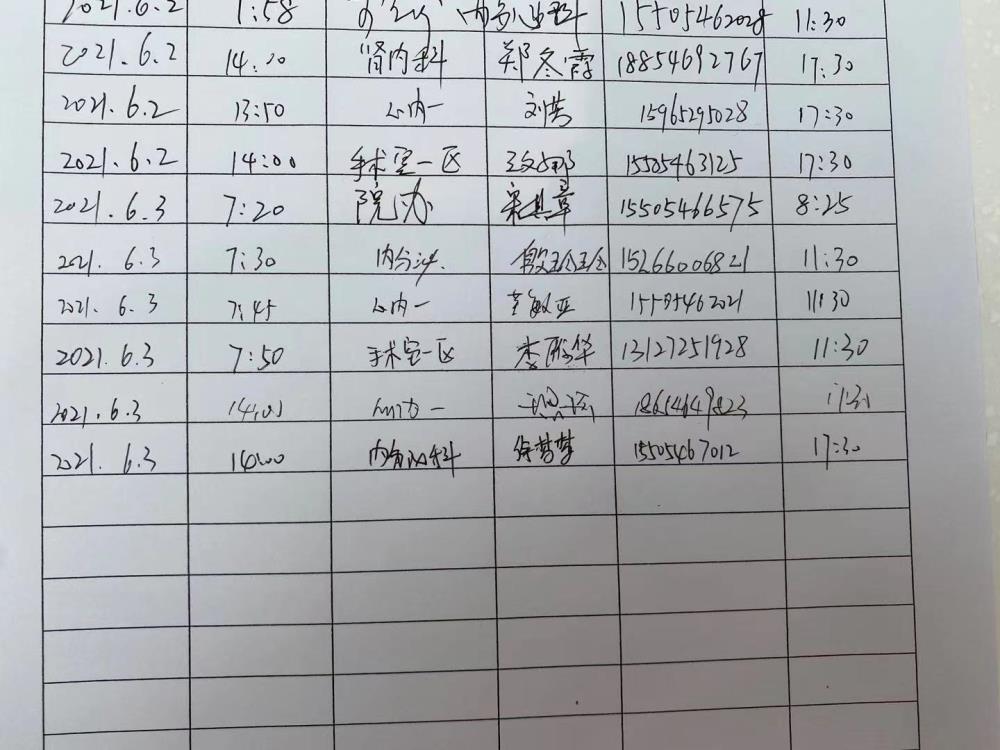 2021.6.2 1:58 15505462028 11:30
2021.6.2 14:00 肾内科 郑冬霞 18854692767 17:30
2021.6.2 13:50 心内一 刘芳 15965295028 17:30
2021.6.2 14:00 手术室一区 15505463125 17:30
2021.6.3 7:20 院办 15505466575 8:25
2021.6.3 7:30 内分泌 殷玲玲 15266006821 11:30
2021.6.3 7:45 心内一 15505462021 11:30
2021.6.3 7:50 手术室一区 李 华 13127251928 11:30
2021.6.3 14:00 一 18654649823
2021.6.3 14:00 徐梦梦 15505467012 17:30